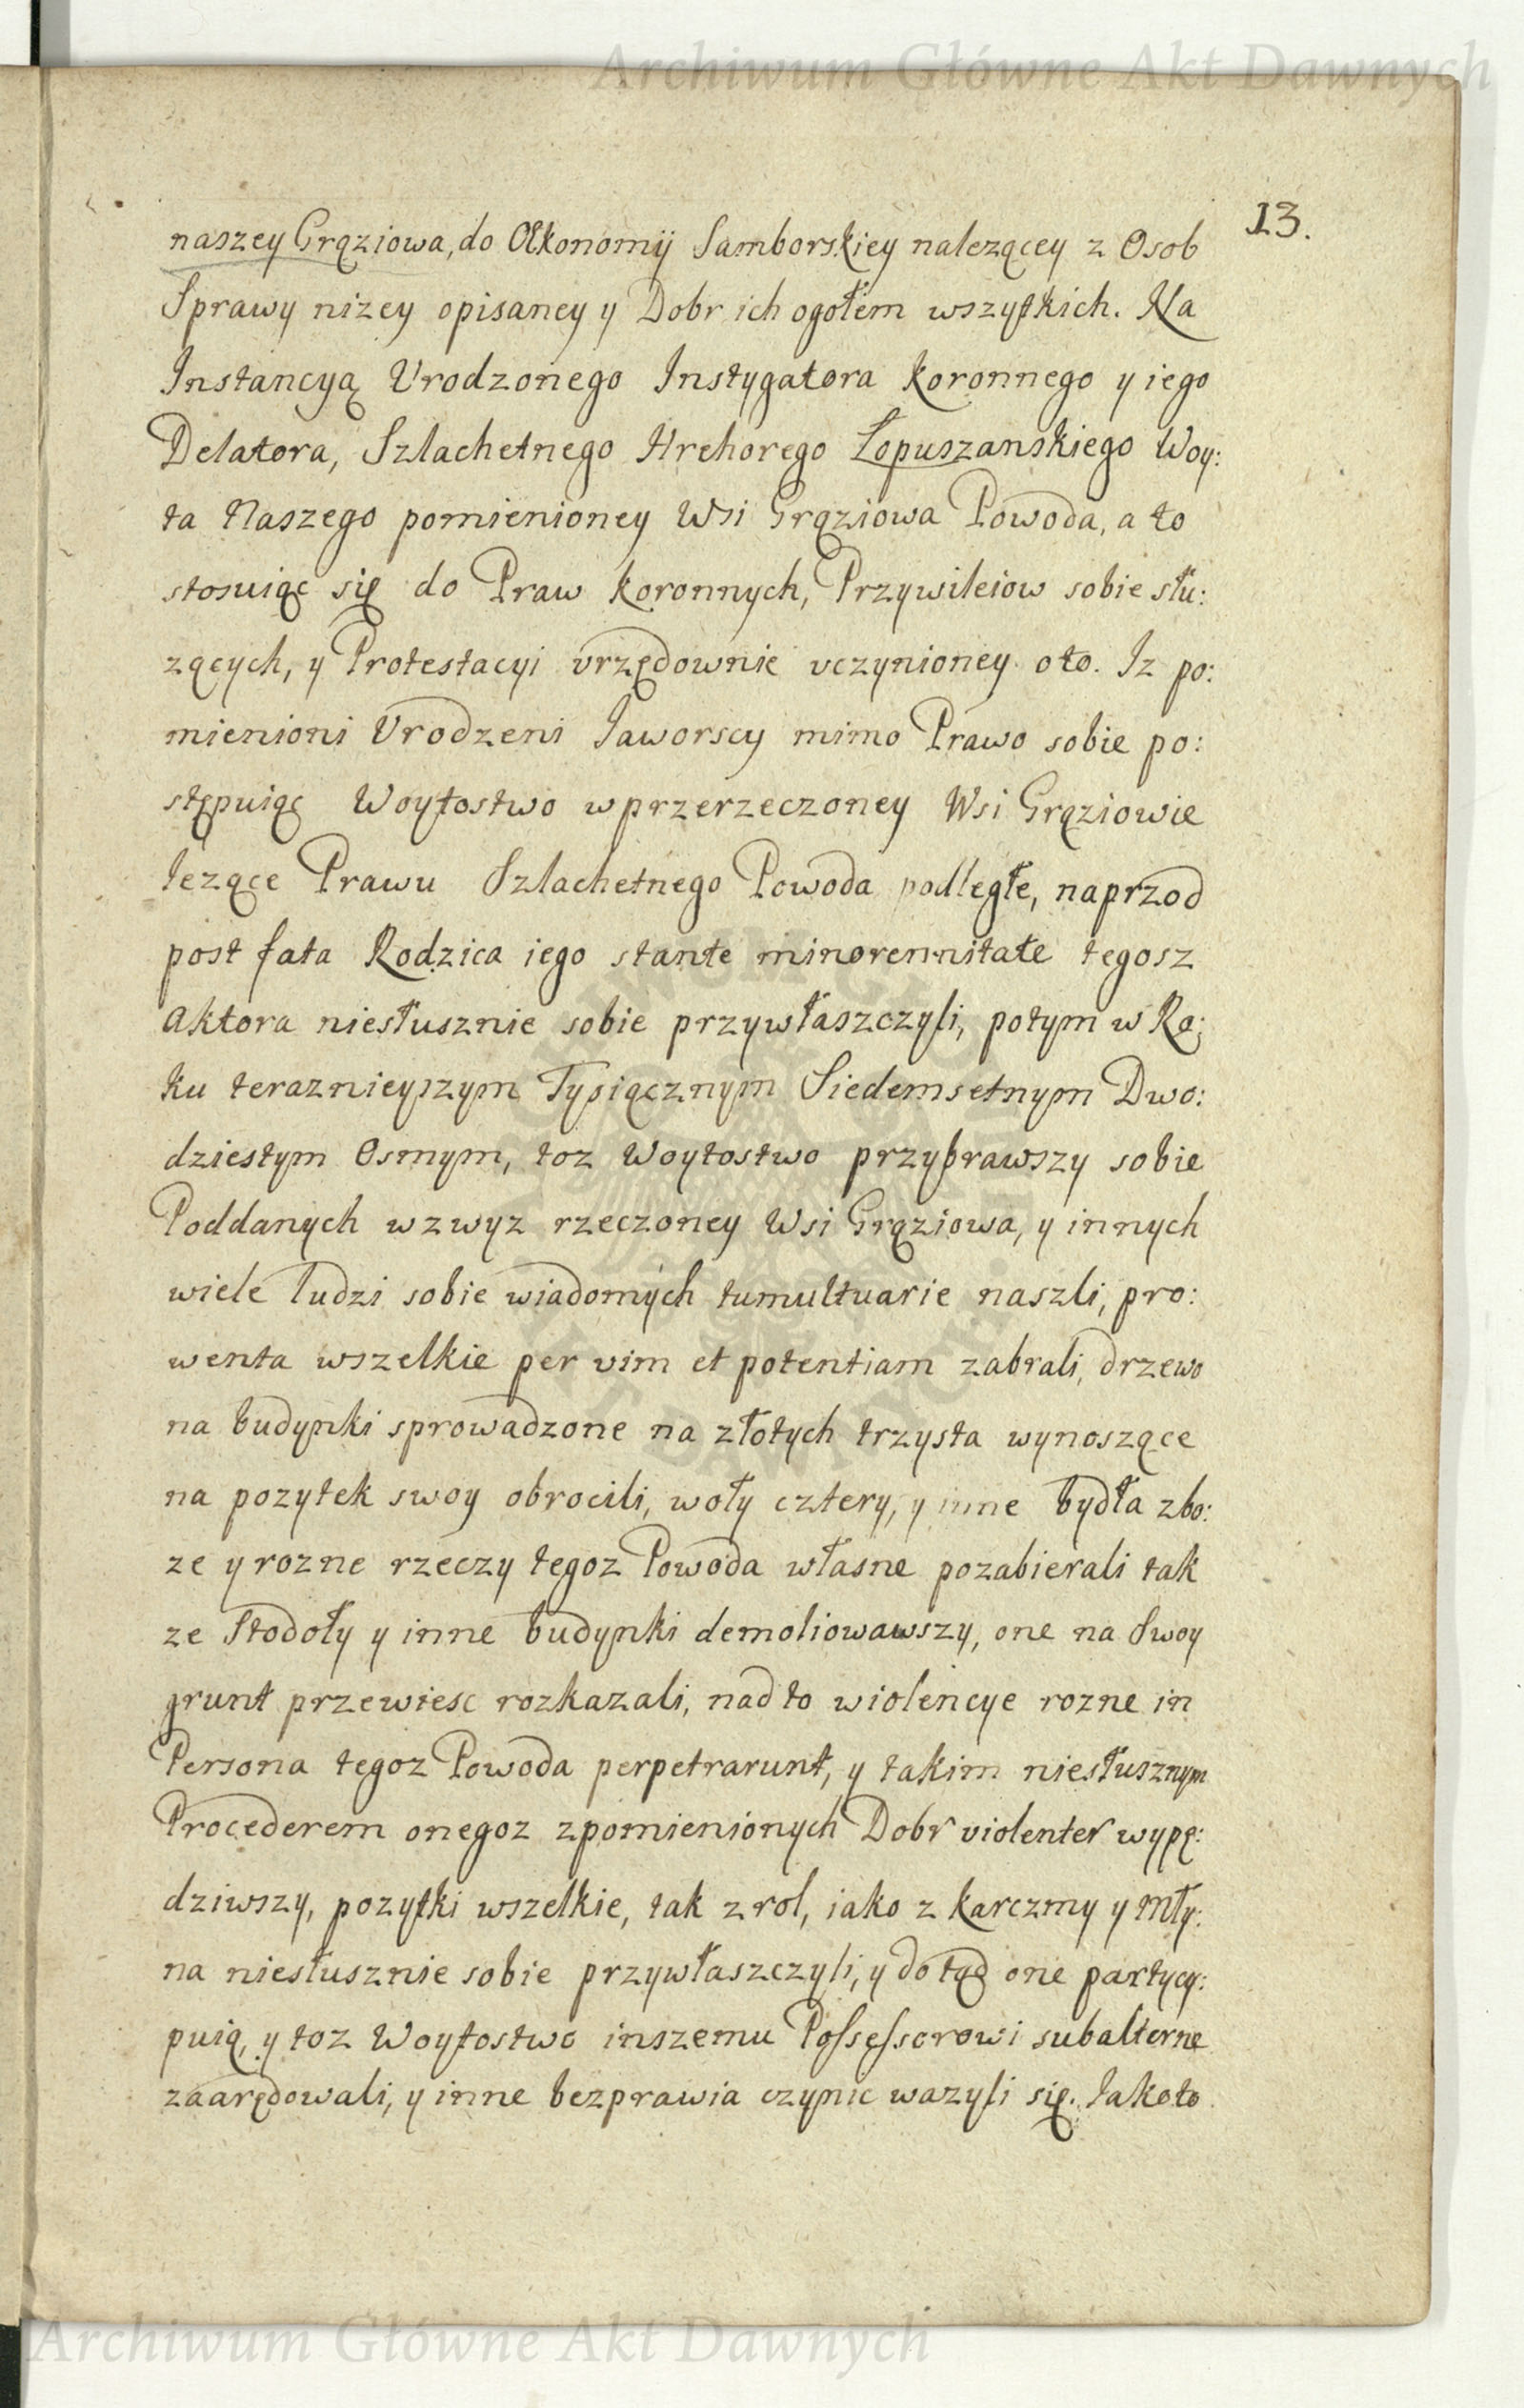 Archiwum Główne Akt Dawnych
13.
naszey Grąziowa, do Œkonomij Samborskiey nalezącey z Osob
Sprawy nizey opisaney y Dobr ich ogołem wszytkich. Na
Instancyą Vrodzonego Instygatora Koronnego y iego
Delatora, Szlachetnego Hrehorego Łopuszanskiego Woy:
ta Naszego pomienioney Wsi Grąziowa Powoda, a to
stosuiąc się do Praw Koronnych, Przywileiow sobie słu:
zących, y Protestacyi vrzędownie vczynioney oto. Iz po:
mienioni Vrodzeni Jaworscy mimo Prawo sobie po:
stępuiąc Woytostwo w przerzeczoney Wsi Grąziowie
lezące Prawu Szlachetnego Powoda podległe, naprzod
post fata Rodzica iego stante minorennitate tegosz
Aktora niesłusznie sobie przywłaszczyli, potym w Ro:
ku teraznieyszym Tysiącznym Siedemsetnym Dwo:
dziestym Osmym, toz Woytostwo przybrawszy sobie
Poddanych wzwyz rzeczoney Wsi Grąziowa, y innych
wiele ludzi sobie wiadomych tumultuarie naszli, pro:
wenta wszelkie per vim et potentiam zabrali, drzewo
na budynki sprowadzone na złotych trzysta wynoszące
na pozytek swoy obrocili, woły cztery, y inne bydła zbo:
ze y rozne rzeczy tegoz Powoda własne pozabierali tak
ze Stodoły y inne budynki demoliowawszy, one na Swoy
grunt przewiesc rozkazali, nad to wiolencye rozne in
Persona tegoz Powoda perpetrarunt, y takim niesłusznym
Procederem onegoz z pomienionych Dobr violenter wypę:
dziwszy, pozytki wszelkie, tak z rol, iako z Karczmy y Mły:
na niesłusznie sobie przywłaszczyli, y do tąd one partycy:
puią, y toz Woytostwo inszemu Possessorowi subalterne
zaarędowali, y inne bezprawia czynic wazyli się. Iakoto
Archiwum Główne Akt Dawnych